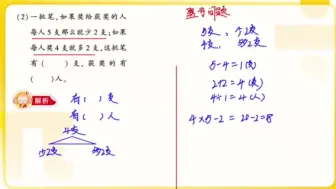 (2)一批笔,如果奖给获奖的人
每人5支那么就少2支;如果
每人奖4支就多2支,这批笔
有( )支,获奖的有
( )人。
解析
有( )支
有( )人
4支
少2支 多2支
盈亏问题
5支,少2支
4支,多2支
5-4=1(支)
2+2=4(支)
4÷1=4(人)
4×5-2=20-2=18